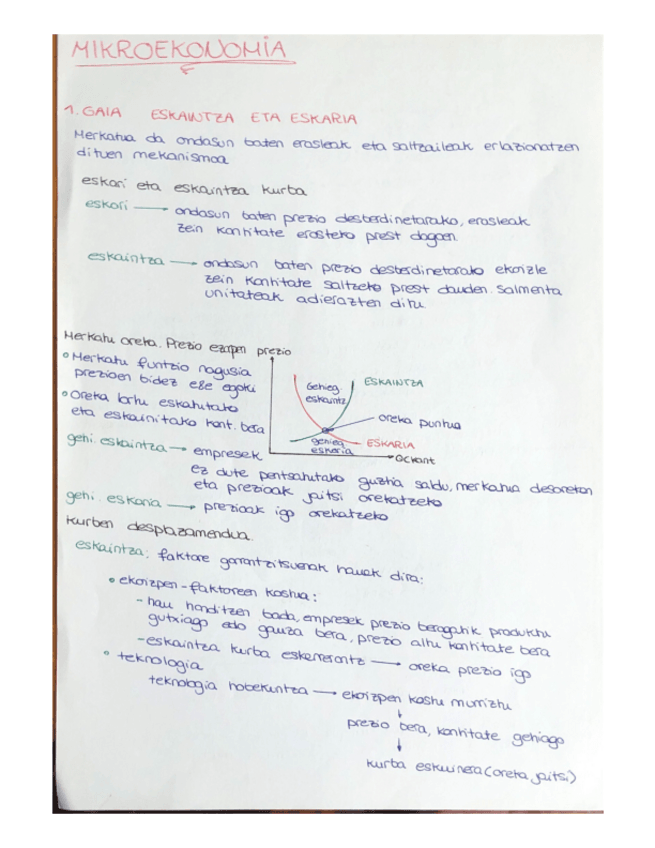 MIKROEKONOMIA
1. GAIA ESKAINTZA ETA ESKARIA
Merkatua da ondasun baten erosleak eta saltzaileak erlazionatzen
dituen mekanismoa
eskari eta eskaintza kurba
eskari → ondasun baten prezio desberdinetarako, erosleak
zein kantitate erosteko prest dagoen.
eskaintza → ondasun baten prezio desberdinetarako ekoizle
zein kantitate saltzeko prest dauden. Salmenta
unitateak adierazten ditu.
Merkatu oreka. Prezio ezarpen prezio
Merkatu funtzio nagusia
prezioen bidez e&e egoki
Oreka lortu eskatutako
eta eskainitako kant. bera
Gehieg. eskaintz
ESKAINTZA
oreka puntua
gehieg eskaria
ESKARIA
Q kant
gehi. eskaintza → empresek
ez dute pentsatutako guztia saldu, merkatua desorekan
eta prezioak jaitsi orekatzeko
gehi. eskaria → prezioak igo orekatzeko
kurben desplazamendua.
eskaintza; faktore garrantzitsuenak hauek dira:
ekoizpen-faktoreen kostua:
- hau handitzen bada, empresek prezio beragatik produktu
gutxiago edo gauza bera, prezio altu kantitate bera
- eskaintza kurba eskerrerontz → oreka prezio igo
teknologia
teknologia hobekuntza → ekoizpen kostu murriztu
↓
prezio bera, kantitate gehiago
↓
kurba eskuinera (oreka jaitsi)